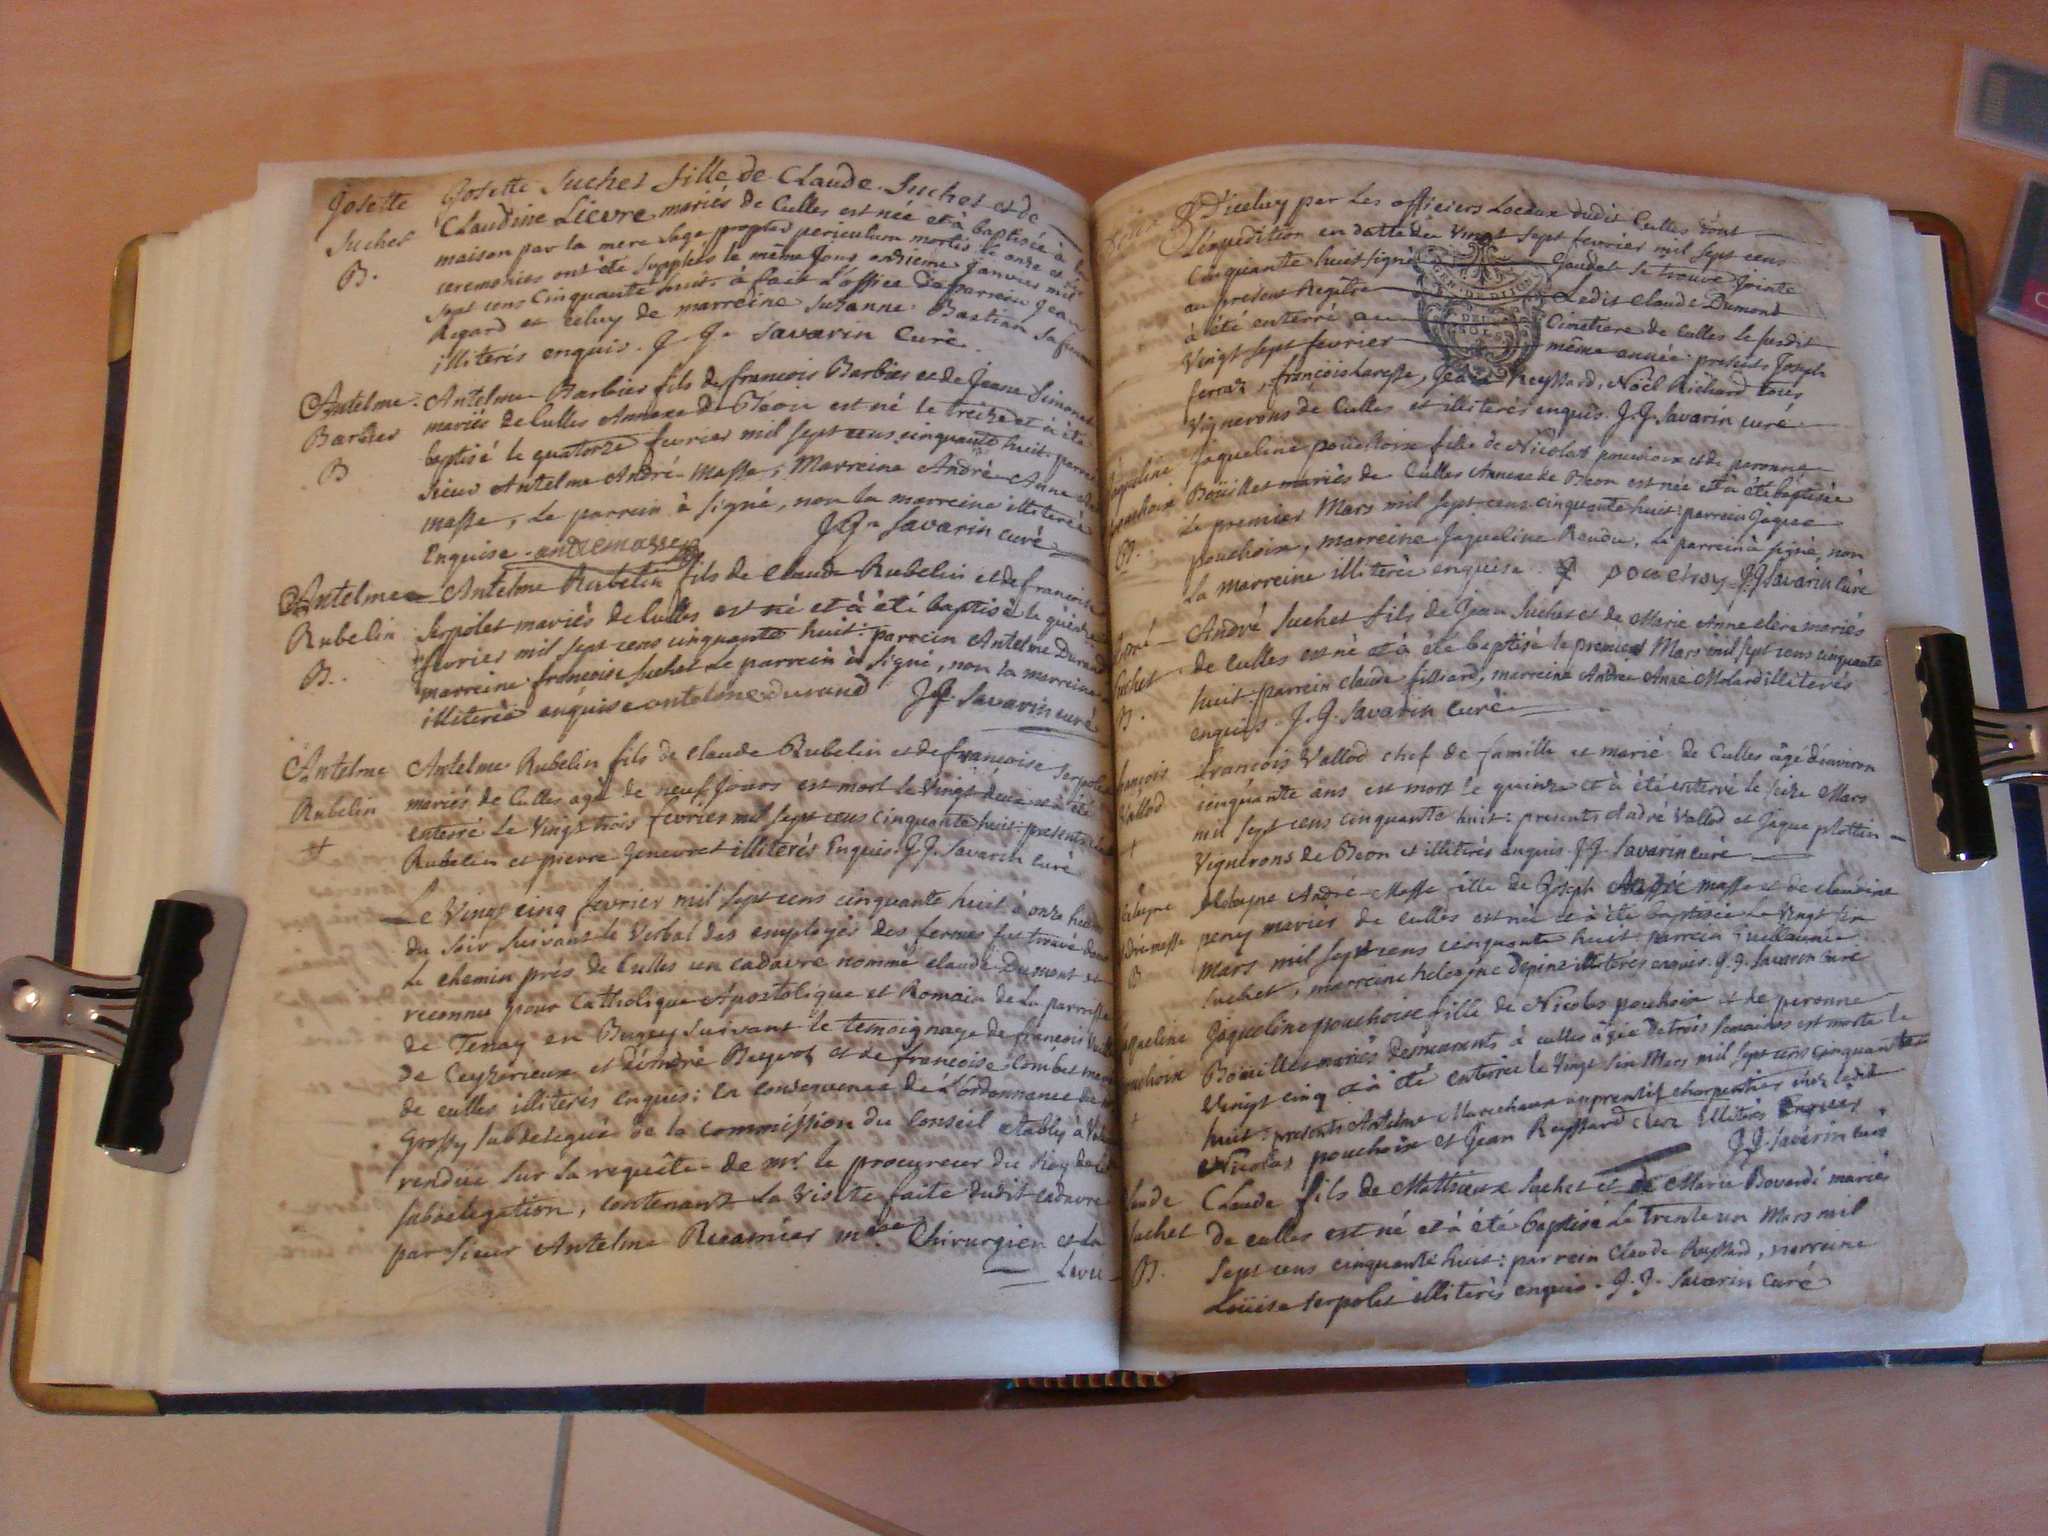 Josette
Suchet
B.
Josette Suchet fille de Claude Suchet et de
Claudine Lievre mariés de Culles est née et à baptisée à la
maison par la mere sage propter periculum mortis le onze et
ceremonies ont été supplées le même Jour onzieme Janvier mil
sept cens Cinquante huit à fait L'office de parrein Jean
Rigard et celuy de marreine Suzanne Bastian sa femme
illiterés enquis. J. J. Savarin Curé.
Antelme
Barbier
B
Antelme Barbier fils de françois Barbier et de Jeane Simonet
mariés de Culles Annexe de Beon est né le treize et à été
baptisé le quatorze fevrier mil sept cens cinquante huit: parrein
sieur Antelme André-Masse, Marreine André-Anne
masse, Le parrein à signé, non la marreine illiterée
Enquise. andremasse J.J. Savarin curé
Antelme
Rubelin
B.
Antelme Rubelin fils de Claude Rubelin et de francoise
Serpolet mariés de Culles est né et à été baptisé le quinze
fevrier mil sept cens cinquante huit: parrein Antelme Durand
marreine françoise Suchet Le parrein à signé, non la marreine
illiterée enquise antelme durand J.J. Savarin curé
Antelme
Rubelin
+
Antelme Rubelin fils de Claude Rubelin et de françoise Serpolet
mariés de Culles agé de neuf Jours est mort le vingt deux et à été
enterré Le Vingt trois fevrier mil sept cens cinquante huit: presents
Rubelin et pierre Jenevret illiterés Enquis. J.J. Savarin curé
Le Vingt cinq fevrier mil sept cens cinquante huit à onze heures
du soir suivant le Verbal des employés des fermes fut trouvé dans
Le chemin prés de Culles un cadavre nommé claude Dumont et
reconnu pour Catholique Apostolique et Romain de La parroisse
de Tenay en Bugey suivant le temoignage de francois
de Ceyzerieux et d'André Beyrot et de francoise Combet
de culles illiterés enquis; en consequence de L'ordonnance de
Grossy subdelegué de la Commission du Conseil etably à
rendue sur la requête de mr. le procureur du Roy de la
subdelegation, contenant La visite faite dudit cadavre
par sieur Antelme Recamier mtre. Chirurgien et la
Levée
D'iceluy par Les officiers Locaux dudit Culles dont
L'expedition en datte du Vingt sept fevrier mil sept cens
Cinquante huit signé Goudet se trouve Jointe
au present Regître Ledit Claude Dumond
à été enterré au Cimetiere de Culles le susdit
Vingt sept fevrier même année: presents Joseph
ferraz, françois Laresse, Jean Reyssard, Noël Richard tous
Vignerons de Culles et illiterés enquis. J.J. Savarin curé
Jaqueline
pouchoix
B.
Jaqueline pouchoix fille de Nicolas pouchoix et de peronne
Boüillet mariés de Culles Annexe de Beon est née et à été baptisée
Le premier Mars mil sept cens cinquante huit: parrein Jaque
pouchoix, marreine Jaqueline Rendu, Le parrein à signé, non
La marreine illiterée enquise. J pouchoy J.J. Savarin Curé
André
Suchet
B.
André Suchet fils de Jean Suchet et de Marie Anne clere mariés
de Culles est né et à été baptisé le premier Mars mil sept cens cinquante
huit: parrein claude filliard, marreine Andrea Anne Molard illiterés
enquis. J.J. Savarin Curé
françois
Vallod
+
françois Vallod chef de famille et marié de Culles agé d'environ
cinquante ans est mort le quinze et à été enterré le seize Mars
mil sept cens cinquante huit: presents André Vallod et Jaque plottin
Vignerons de Beon et illiterés enquis. J.J. Savarin curé
André masse
B
André-Masse fille de Joseph André masse et de claudine
peney mariés de Culles est née et à été baptisée Le Vingt six
Mars mil sept cens cinquante huit: parrein Guillaume
Suchet, marreine depine illiterés enquis. J.J. Savarin curé
Jaqueline
pouchoix
+
Jaqueline pouchoix fille de Nicolas pouchoix et de peronne
Boüillet mariés demeurants à Culles agée de trois semaines est morte le
Vingt cinq et à été enterrée le Vingt six Mars mil sept cens cinquante
huit: presents Antelme Marechaux apprentif charpentier chez ledit
Nicolas pouchoix et Jean Reyssard clerc illiterés Enquis
J.J. Savarin curé
Claude
Suchet
B.
Claude fils de Matthieux Suchet et de Marie Bovardi mariés
de culles est né et à été baptisé Le trente un Mars mil
sept cens cinquante huit: parrein Claude Reyssard, marreine
Loüise Serpolet illiterés enquis. J.J. Savarin Curé